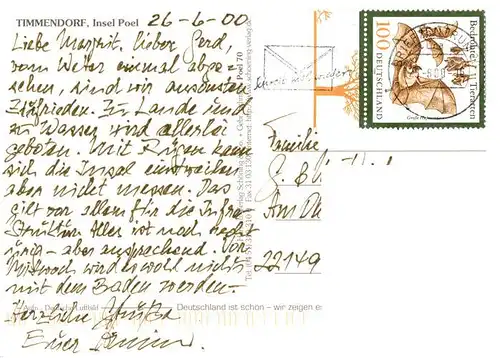 TIMMENDORF, Insel Poel 26-6-00
Liebe Margrit, lieber Gerd,
vom Wetter einmal abge-
sehen, sind wir ansonsten
zufrieden. Zu Lande und
zu Wasser wird allerlei
geboten. Mit Rügen kann
sich die Insel einstweilen
aber nicht messen. Das
gilt vor allem für die Infra-
struktur. Alles ist noch recht
- aber ansprechend. Vor
Mittwoch wird es wohl nichts
mit dem Baden werden.
Herzliche Grüße
Euer
Deutschland ist schön – wir zeigen es
Poel 70
Bedrohte Tierarten
100
DEUTSCHLAND
Große Hufeisennase
Schreib mal wieder
Familie
Am
22149